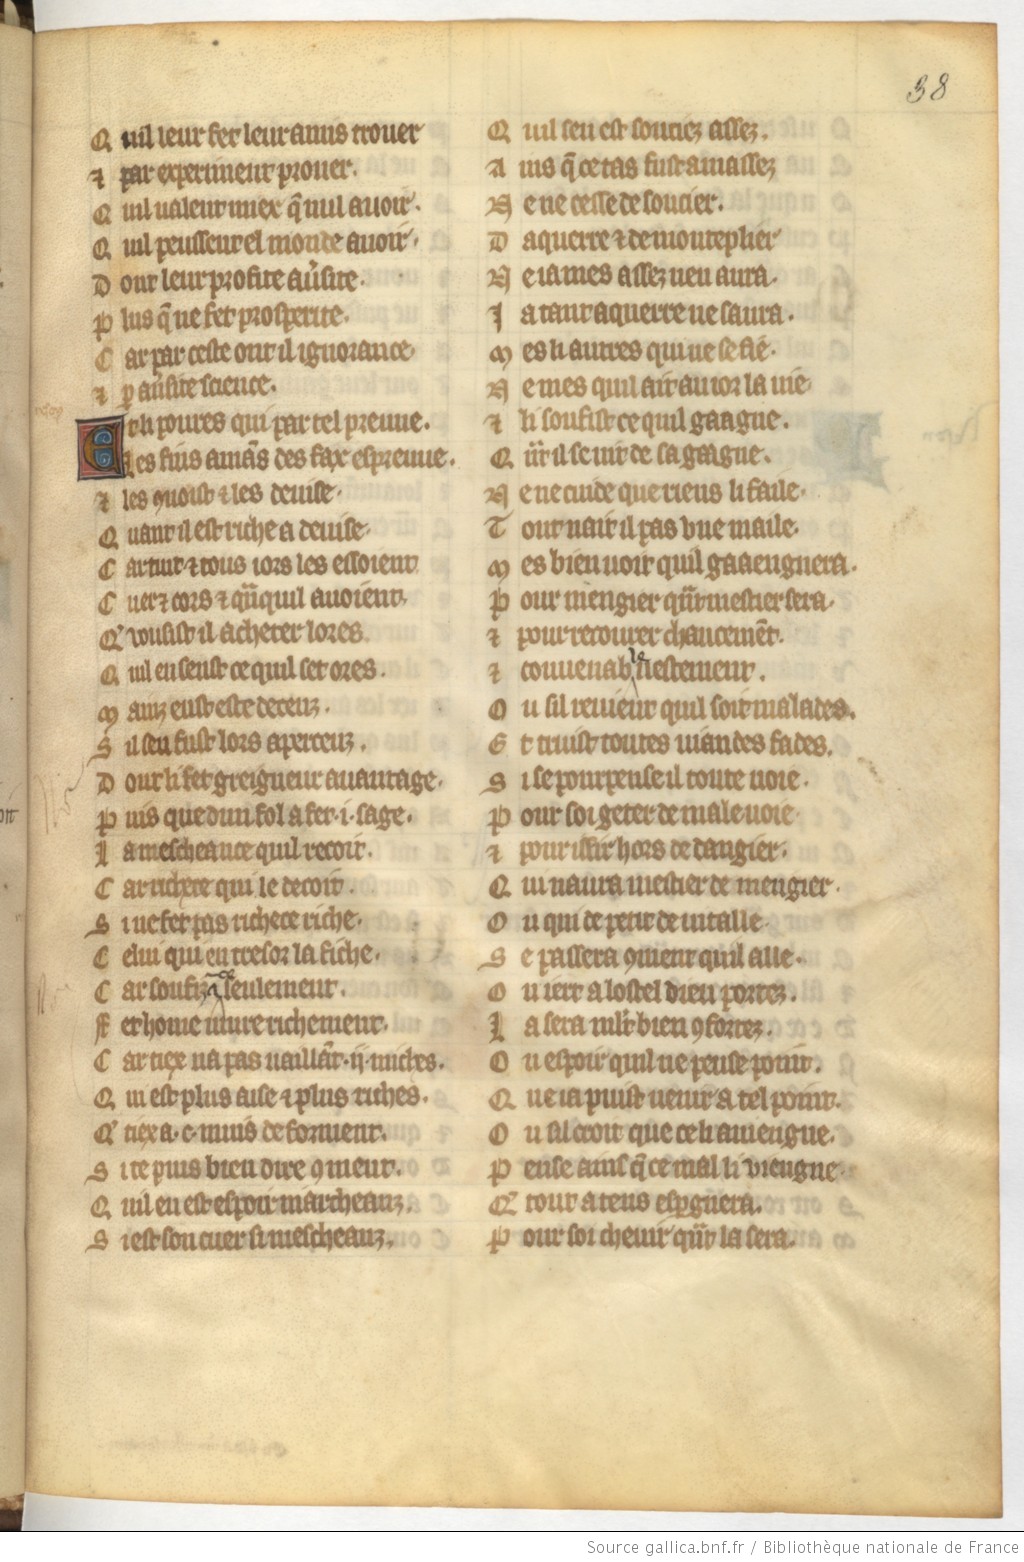 38
Quil leur fet leur amis trouer
⁊ par experiment prouer.
Quil ualent miex q̃ nul auoir.
Quil peussent el monde auoir.
Dont leur profite au̾site.
Plus q̃ ne fet prosperite.
Car par ceste ont il ignorance
⁊ ꝑ au̾site science.
Et li poures qui par tel preuue.
Les fins amãs des fax espreuue.
⁊ les ꝯnoist ⁊ les deuise.
Quant il est riche a deuise.
Car tuit ⁊ tous iors les essoient
Cuer ⁊ cors ⁊ q̃nquil auoient.
Q̾ vousist il acheter lores
Quil en seust ce quil set ores.
Mainz eust este deceuz.
Sil sen fust lors aperceuz.
Dont li fet greigneur auantage.
Puis que dun fol a fet .i. sage.
La mescheance quil recoit.
Car richece qui le decoit.
Si ne fet pas richece riche.
Celui qui en tresor la fiche.
Car soufizãce seulement.
Fet home viure richement.
Car tiex na pas uaillãt .ij. miches.
Qui est plus aise ⁊ plus riches.
Q̾ tiex a .c. muis de forment.
Si te puis bien dire ꝯment.
Quil en est espoir marcheanz.
Si est son cuer si mescheanz.
Quil sen est souciez assez.
Ains q̃ ce tas fust amassez
Ne ne cesse de soucier.
Daquerre ⁊ de monteplier
Ne iames assez nen aura.
Ia tant aquerre ne saura.
Mes li autres qui ne se fie.
Ne mes quil ait au ior la uie
⁊ li soufist ce quil gaagne.
Qñt il se uit de sa gaagne.
Ne ne cuide que riens li faile.
Tout nait il pas vne maile.
Mes bien uoit quil gaaengnera.
Pour mengier qñt mestier sera.
⁊ pour recouurer chaucemẽt.
⁊ conuenable uestement.
Ou sil reuient quil soit malades.
Et truist toutes uiandes fades.
Si se pourpense il toute uoie.
Pour soi geter de male uoie
⁊ pour issir hors de dangier.
Qui naura mestier de mengier.
Ou qui de petit de uitalle
Se passera ꝯment quil alle.
Ou iert a lostel dieu portez.
La sera ml̾t bien ꝯfortez.
Ou espoir quil ne pense point.
Que ia puist uenir a tel point.
Ou sil croit que ce li auiengne.
Pense ains q̃ ce mal li viengne
Q̾ tout a tens esꝑgnera.
Pour soi cheuir qñt la sera.
Source gallica.bnf.fr / Bibliothèque nationale de France